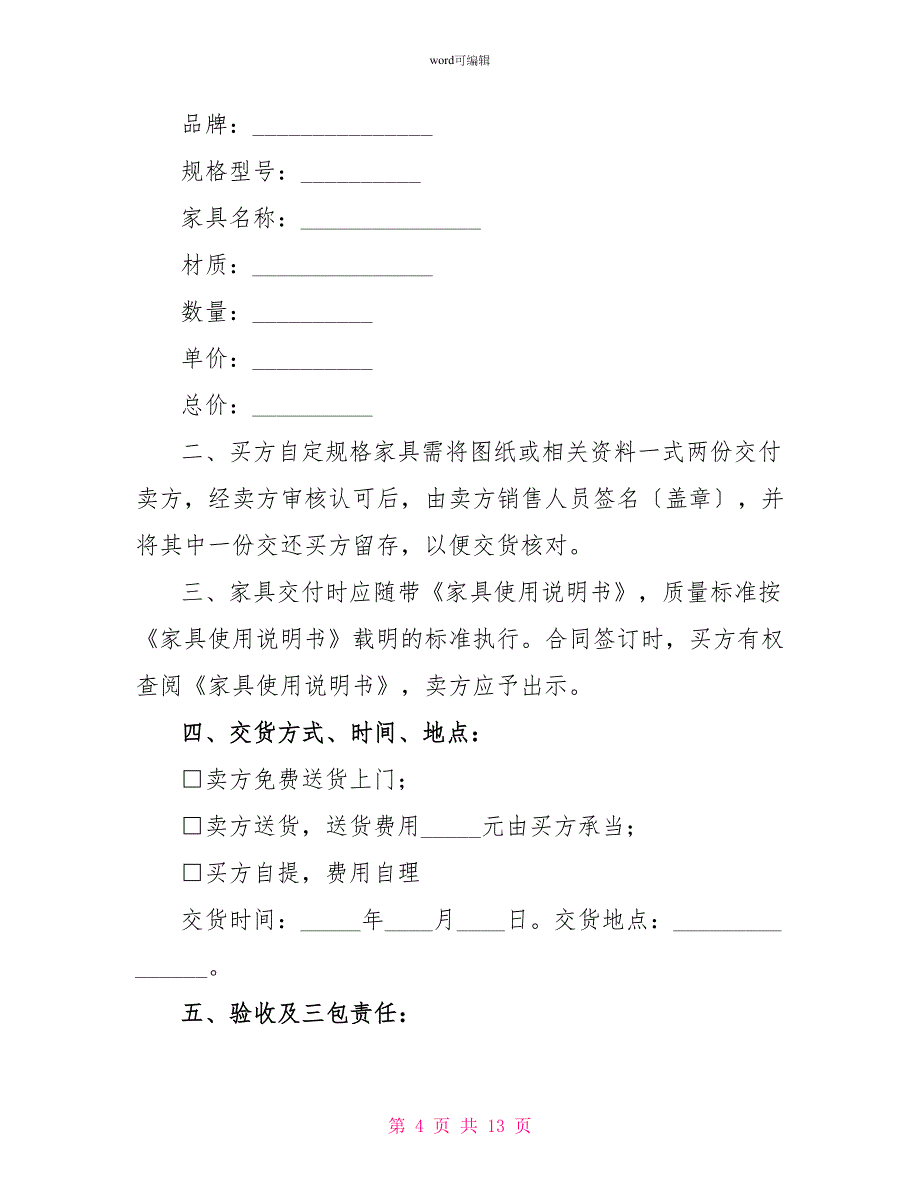 word可编辑
品牌：_______________
规格型号：__________
家具名称：_______________
材质：_______________
数量：__________
单价：__________
总价：__________
二、买方自定规格家具需将图纸或相关资料一式两份交付
卖方，经卖方审核认可后，由卖方销售人员签名〔盖章〕，并
将其中一份交还买方留存，以便交货核对。
三、家具交付时应随带《家具使用说明书》，质量标准按
《家具使用说明书》载明的标准执行。合同签订时，买方有权
查阅《家具使用说明书》，卖方应予出示。
四、交货方式、时间、地点：
□卖方免费送货上门；
□卖方送货，送货费用_____元由买方承当；
□买方自提，费用自理
交货时间：_____年____月____日。交货地点：_________
______。
五、验收及三包责任：
第 4 页 共 13 页